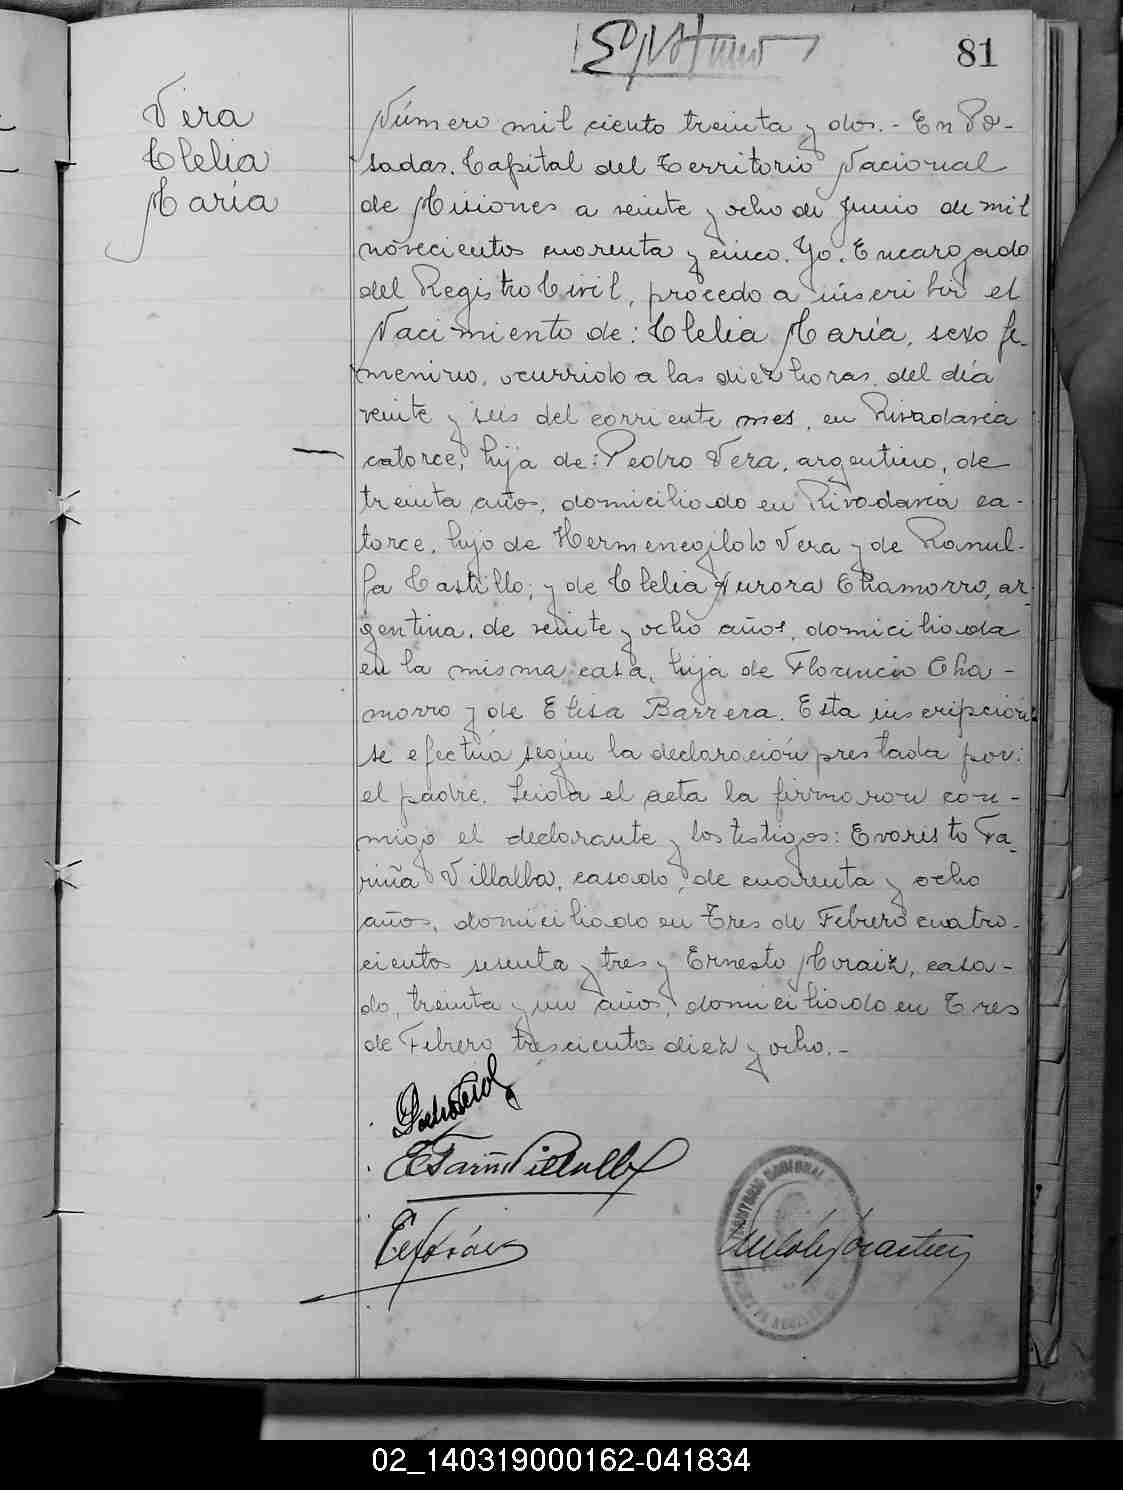 81
Vera
Clelia
María
Número mil ciento treinta y dos.- En Po-
sadas. Capital del Territorio Nacional
de Misiones a veinte y ocho de Junio de mil
novecientos cuarenta y cinco. Yo. Encargado
del Registro Civil, procedo a inscribir el
Nacimiento de: Clelia María, sexo fe-
menino, ocurrido a las diez horas del día
veinte y seis del corriente mes, en Rivadavia
catorce, hija de: Pedro Vera, argentino, de
treinta años, domiciliado en Rivadavia ca-
torce, hijo de Hermenegildo Vera y de Ranul-
fa Castillo; y de Clelia Aurora Chamorro, ar-
gentina, de veinte y ocho años, domiciliada
en la misma casa, hija de Florencio Cha-
morro y de Elisa Barrera. Esta inscripción
se efectúa según la declaración prestada por:
el padre. Leida el acta la firmaron con-
migo el declarante y los testigos: Evaristo Fa-
riña Villalba, casado, de cuarenta y ocho
años, domiciliado en Tres de Febrero cuatro-
cientos sesenta y tres y Ernesto Moraiz, casa-
do, treinta y un años, domiciliado en Tres
de Febrero trescientos diez y ocho.-
Pedro Vera
E Fariña Villalba
TERRITORIO NACIONAL
02_140319000162-041834